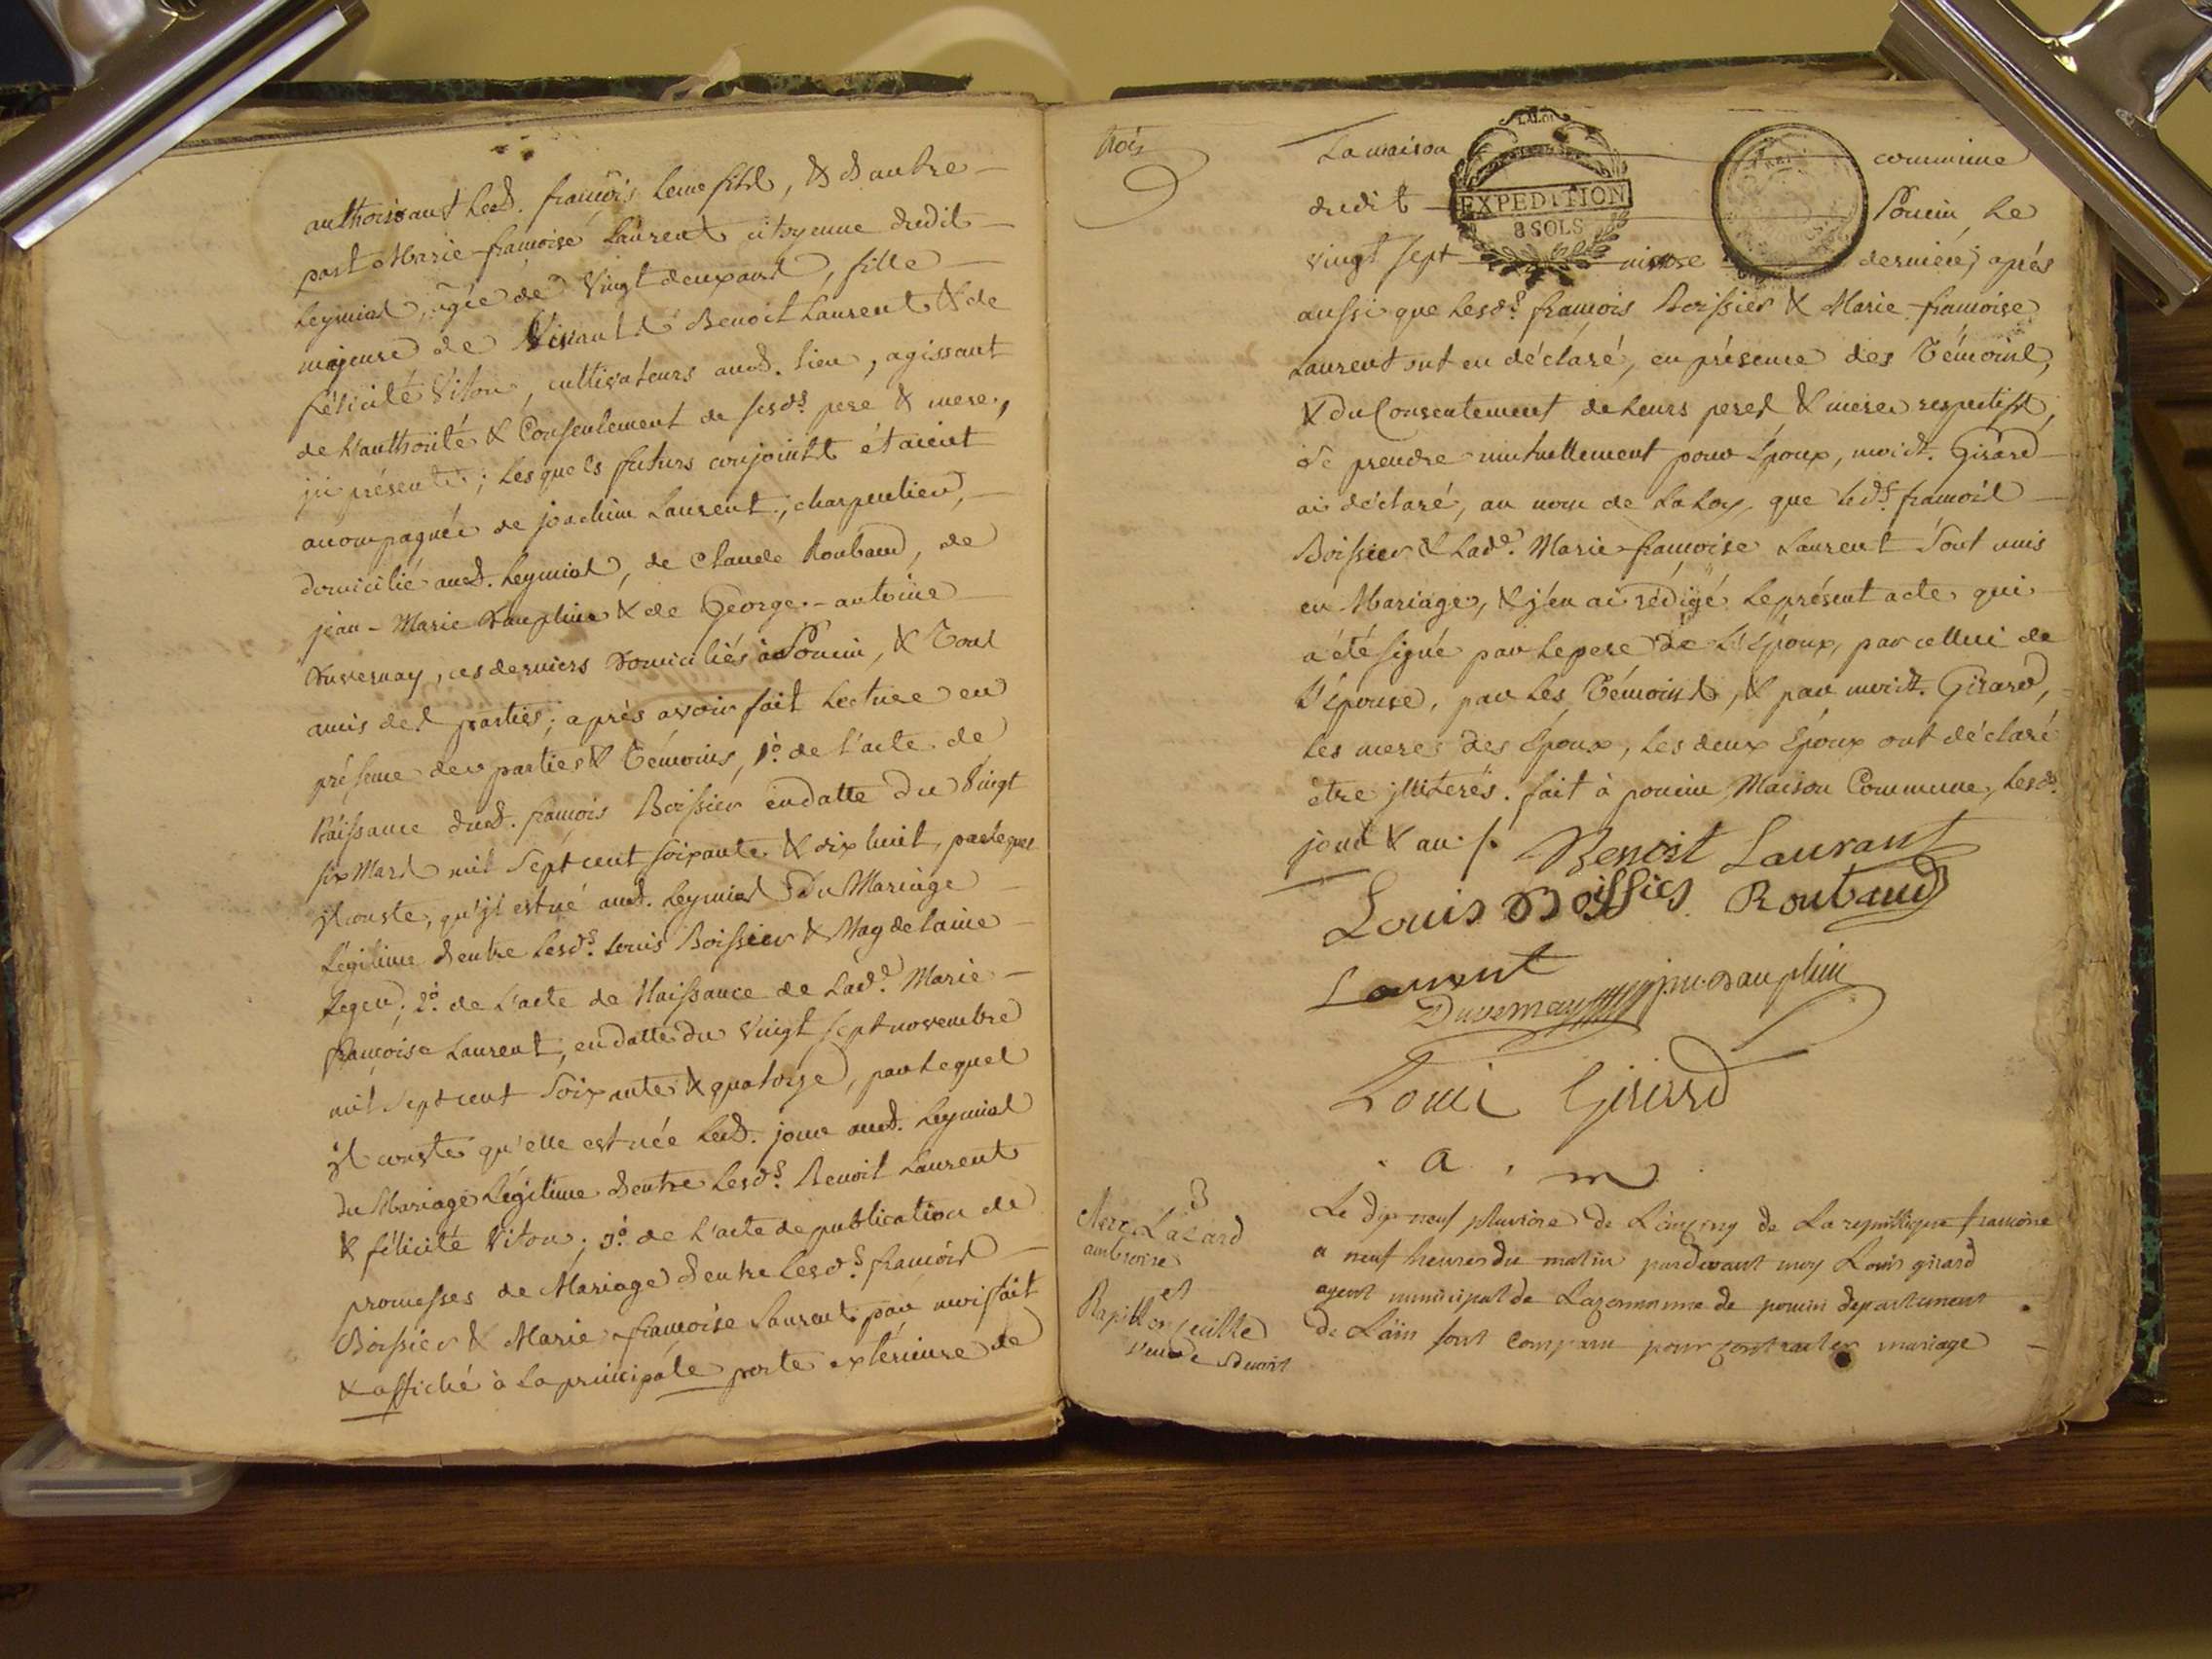 authorisant led. françois leur fils, & d'autre
part Marie-françoise Laurent citoyenne dudit
Leymiat, âgée de Vingt deux ans, fille
majeure de Vivants Benoit Laurent & de
félicité Viton, cultivateurs aud. lieu, agissant
de l'authorité & Consentement de sesds. pere & mere,
ici présents; Lesquels futurs conjoints étaient
accompagnés de joachim Laurent, charpentier,
domicilié aud. Leymiat, de Claude Roubaud, de
jean-Marie Dauphin & de George-antoine
Duvernay, ces derniers domiciliés à Poncin, & Tous
amis des parties; après avoir fait Lecture en
présence des parties & Témoins, 1o. de l'acte de
Naissance dud. françois Boissier en datte du Vingt
six Mars mil Sept cent soixante & dix huit, par lequel
il conste, qu'il est né aud. Leymiat du Mariage
Légitime d'entre Lesds. Louis Boissier & Magdelaine
Leger; 2o. de L'acte de Naissance de Lade. Marie
françoise Laurent, en datte du Vingt sept novembre
mil Sept cent Soixante & quatorze, par Lequel
il conste qu'elle est née Led. jour aud. Leymiat
du Mariage Légitime d'entre Lesds. Benoit Laurent
& félicité Viton; 3o. de L'acte de publication de
promesses de Mariage d'entre Lesds. françois
Boissier & Marie-françoise Laurent par moi fait
& affiché à La principale porte extérieure de
trois
La maison commune
dudit Poncin Le
vingt sept nivose dernier; après
LA LOI
EXPEDITION
8 SOLS
aussi que Lesds. françois Boissier & Marie-françoise
Laurent ont eu déclaré, en présence des Témoins,
& du Consentement de Leurs peres & meres respectifs,
Se prendre mutuellement pour Epoux, moidt. Girard
ai déclaré, au nom de La Loy, que Leds. françois
Boissier & Lade. Marie-françoise Laurent Sont unis
en Mariage, & j'en ai rédigé Le présent acte qui
a été signé par Le pere de L'Epoux, par cellui de
L'épouse, par Les Témoins, & par moidt. Girard,
Les meres des Epoux, Les deux Epoux ont déclaré
être illiterés. fait à poncin, Maison Commune, Lesds.
jour & an.
Benoit Laurant
Louis Boissies Roubaud
Laurent
Duvernay jm. Dauphin
Loui Girard
a . m
3
Lazard
ambroise
et
veuve
Le dix neuf pluviose de L'an cinq de La republique francoise
a neuf heures du matin pardevant moy Louis girard
agent municipal de La commune de poncin departement
de L'ain sont comparu pour contracter mariage